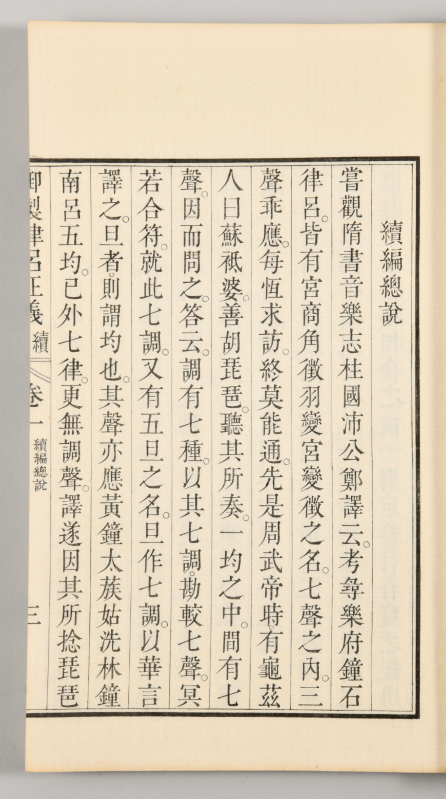 續編總說
嘗觀隋書音樂志柱國沛公鄭譯云。考㝷樂府鐘石
律呂。皆有宮商角徵羽變宮變徵之名。七聲之內。三
聲乖應。每恆求訪。終莫能通。先是周武帝時。有龜茲
人曰蘇祇婆。善胡琵琶。聽其所奏。一均之中。間有七
聲。因而問之。答云。調有七種。以其七調。勘較七聲。冥
若合符。就此七調。又有五旦之名。旦作七調。以華言
譯之。旦者則謂均也。其聲亦應黃鐘太蔟姑洗林鐘
南呂五均。已外七律。更無調聲。譯遂因其所捻琵琶
御製律呂正義 續 卷一 續編總說 三